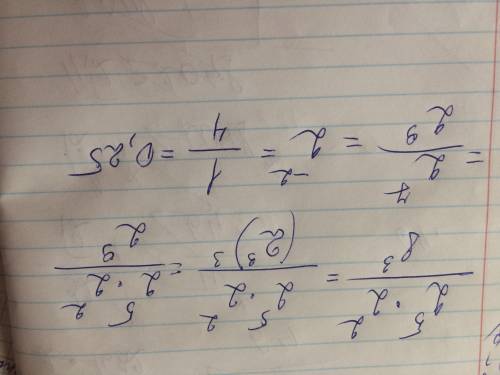 2⁵·2²/8³ = 2⁵·2²/(2³)³ = 2⁵·2²/2⁹
= 2⁷/2⁹ = 2⁻² = 1/4 = 0,25